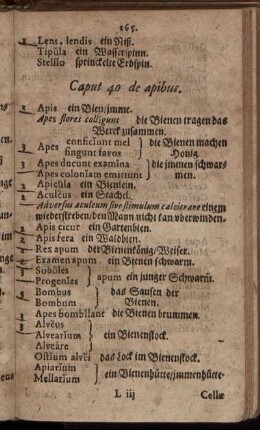 165.
Lens, lendis ein Niß.
Tipŭla ein Wasserspinn.
Stellio sprinckelte Erdspin.
Caput 40 de apibus.
Apis ein Bien/jmme.
Apes flores colligunt die Bienen tragen das
Werck zusammen.
Apes conficĭunt mel die Bienen machen
fingunt favos Honig.
Apes ducunt examĭna die jmenen schwar-
Apes colonĭam emittunt men.
Apicŭla ein Bienlein.
Aculĕus ein Stachel.
Adversus aculeum sive stimulum calcitrare einem
wiederstreben/den Mann nicht kan uberwinden-
Apis cicur ein Gartenbien.
Apis fera ein Waldbien.
Rex apum der Bienenkönig/Weiser.
Examen apum ein Bienen schwarm.
Sobŏles
Progenĭes apum ein junger Schwarm.
Bombus das Sausen der
Bombus Bienen.
Apes bombĭlant die Bienen brummen.
Alvĕus
Alvearĭum ein Bienenstock.
Alveāre
Ostĭum alvĕi das Lock im Bienenstock.
Apiarĭum
Mellarĭum ein Bienenhütte/jmmenhütte-
L iij Cellæ